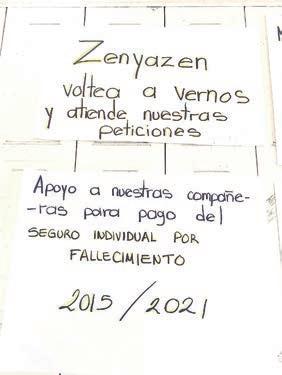 Zenyazen
voltea a vernos
y atiende nuestras
peticiones
Apoyo a nuestras compañe-
-ras para pago del
SEGURO INDIVIDUAL POR
FALLECIMIENTO
2015/2021